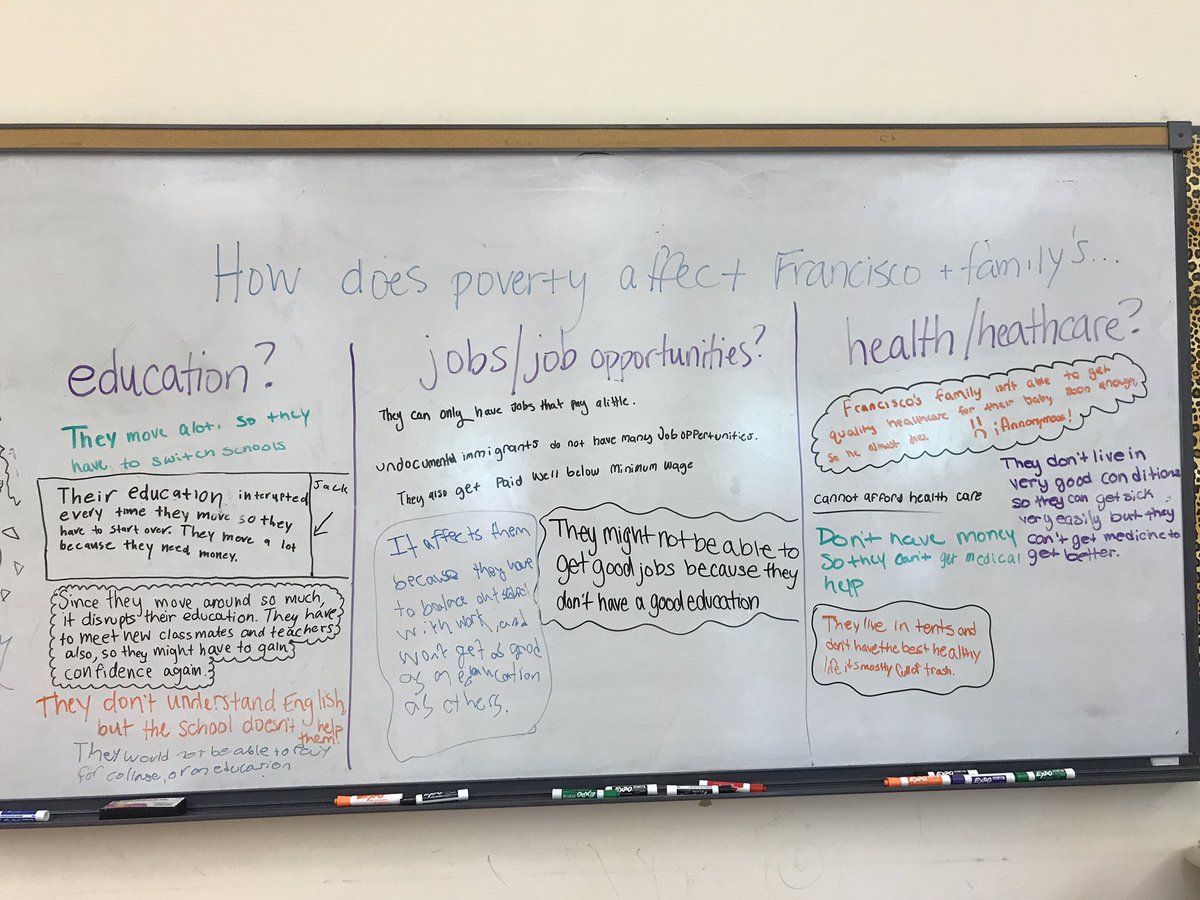 How does poverty affect Francisco + family's...
education?
They move alot. so they
have to switch schools
Their education interupted
every time they move so they
have to start over. They move a lot
because they need money.
Jack
Since they move around so much,
it disrupts their education. They have
to meet new classmates and teachers
also, so they might have to gain
confidence again.
They don't understand English,
but the school doesn't help
them!
They would not be able to pay
for college, or an education
jobs/job opportunities?
They can only have jobs that pay a little.
undocumented immigrants do not have many Job oppertunities.
They also get Paid well below Minimum wage
It affects them
because they have
to balance out school
with work, and
won't get as good
as an education
as others.
They might not be able to
get good jobs because they
don't have a good education
health/heathcare?
Francisco's family isn't able to get
quality healthcare for their baby soon enough,
so he almost dies.
¡Annonymous!
They don't live in
very good conditions
so they can get sick
very easily but they
can't get medicine to
get better.
cannot afford health care
Don't have money
So they can't get medical
help
They live in tents and
don't have the best healthy
life its mostly full of trash.
EXPO
EXPO
EXPO
EXPO
EXPO
EXPO